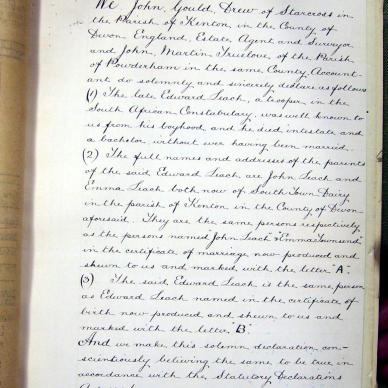 We John Gould Drew of Starcross in
the Parish of Kenton in the County of
Devon England, Estate Agent and Surveyor
and John Martin Truelove of the Parish
of Powderham in the same County Account-
ant do solemnly and sincerely declare as follows
(1) The late Edward Leach, a trooper in the
South African Constabulary, was well known to
us from his boyhood and he died intestate and
a bachelor, without ever having been married.
(2) The full names and addresses of the parents
of the said Edward Leach are John Leach and
Emma Leach both now of South Town Dairy
in the parish of Kenton in the County of Devon
aforesaid. They are the same persons respectively
as the persons named John Leach & Emma Townsend
in the certificate of marriage now produced and
shewn to us and marked with the letter "A".
(3) The said Edward Leach is the same person
as Edward Leach named in the certificate of
birth now produced and shewn to us and
marked with the letter "B".
And we make this solemn declaration con-
scientiously beliving the same to be true in
accordance with the Statutory Declarations